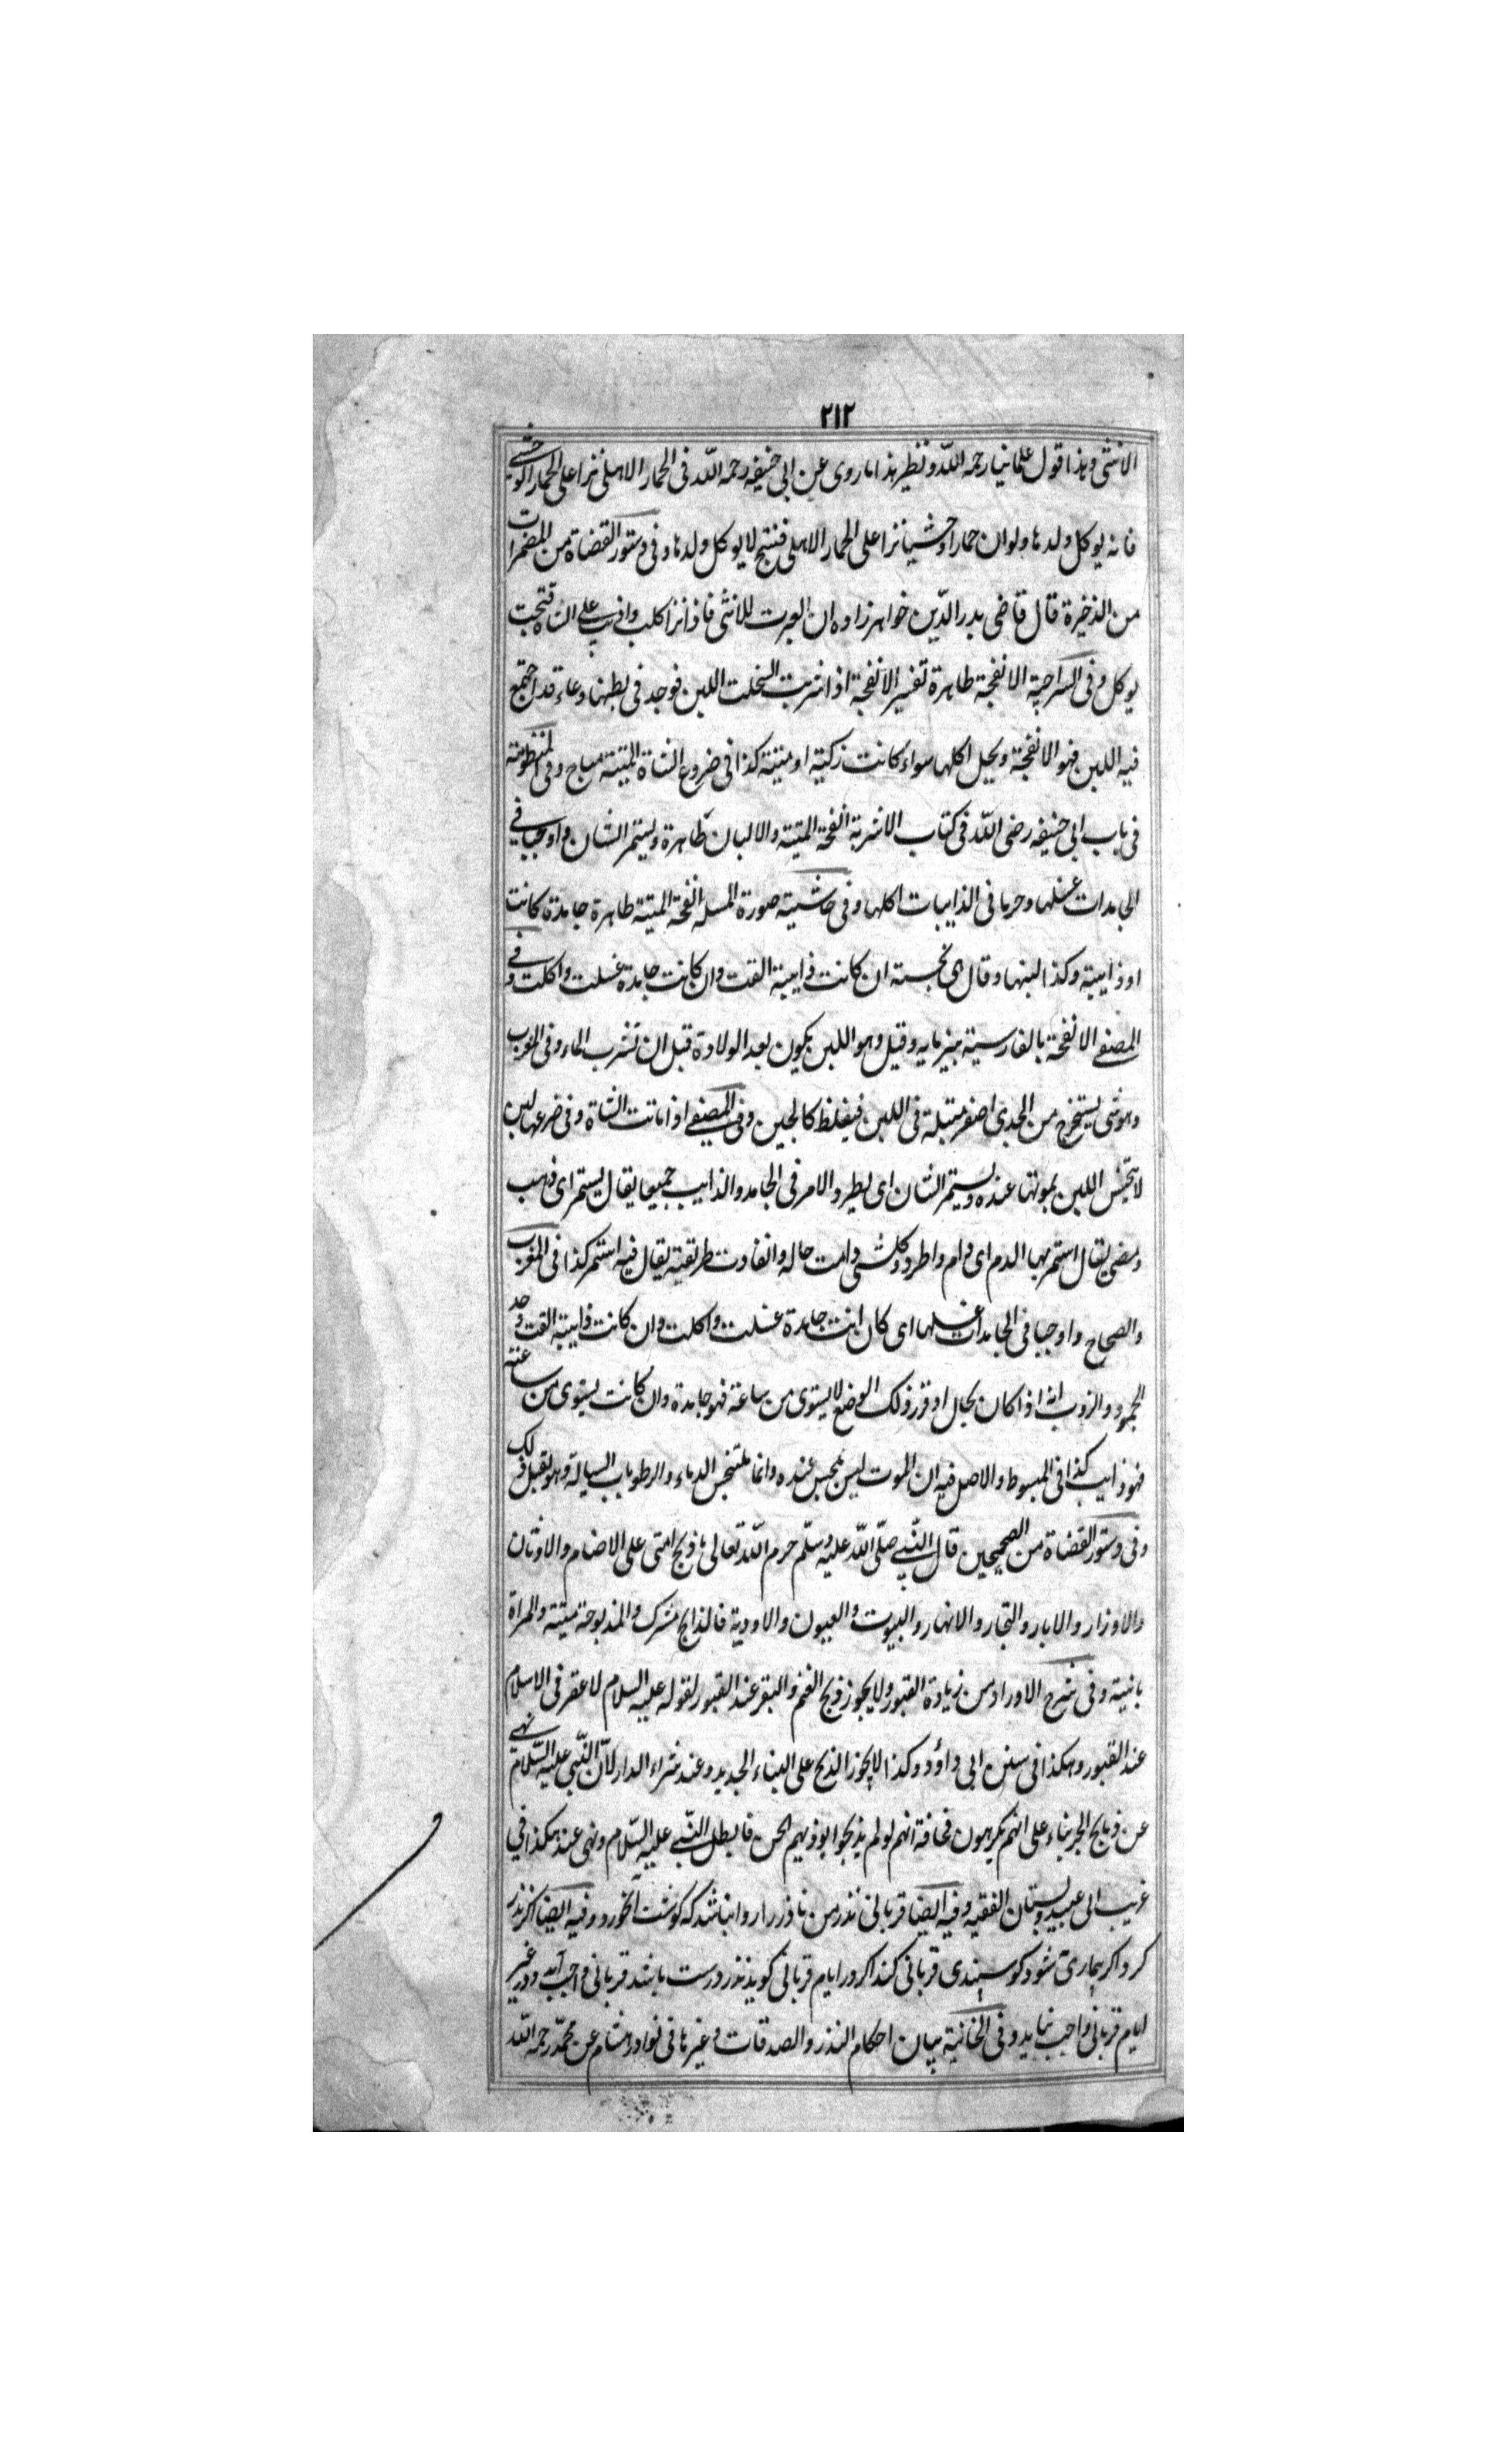 ٢١٢
الانثى وهذا قول علمائنا رحمه الله ونظير هذا ما روى عن ابى حنيفه رحمه الله فى الحمار الاهلى نزا على الحمار الوحشى
فانه يوكل ولدها ولو ان حمارا وحشيا نزا على الحمار الاهلى فنتج لا يوكل ولدها وفى دستور القضاة من المضمرات
من الذخيرة قال قاضى بدر الدين خواهرزاده ان العبرت للانثى فاذا نزا كلب واذيب على الشاة فنتجت
يوكل وفى السراجية الانفجة طاهرة تفسير الانفجة اذا شربت السخلت اللبن فوجد فى بطنها وعاء قد اجتمع
فيه اللبن فهو الانفجة ويحل اكلها سواء كانت زكيته او ميتة كذا فى ضروع الشاة الميتة مباح وفى المنظومة
فى باب ابى حنيفه رضى الله فى كتاب الاشربة انفحة الميتة والالبان طاهرة ويستمر الشان واوجبا فى
الجامدات غسلها وحرما فى الذايبات اكلها وفى حاشيته صورة المسله انفحة الميتة طاهرة جامدة كانت
او ذايبة وكذا لبنها وقال اى نجسته ان كانت ذايبة القت وان كانت جامدة غسلت واكلت وفى
المصفى الانفحة بالفارسية پنيرمايه وقيل وهو اللبن يكون بعد الولادة قبل ان تشرب الماء وفى المغرب
وهو شى يستخرج من الجدى اصفر مبتلة فى اللبن فيغلظ كالجبن وفى المصفى اذا ماتت الشاة وفى ضرعها لبن
لا يتنجس اللبن بموتها عنده ويستمر الشان اى يطرد الامر فى الجامد والذايب جميعا يقال يستمر اى ذهب
ومضى يقال استمر بها الدم اى دام واطرد وكل شى دامت حاله وانقادت طريقته يقال فيه استمر كذا فى المغرب
والصحاح واوجبا فى الجامدات غسلها اى كان انت جامدة غسلت واكلت وان كانت ذايبة القت وحد
الجمود والذوب انه اذا كان بحال او قور ذلك الوضع لا يستوى من ساعة فهو جامدة وان كانت يستوى من ساعته
فهو ذايب كذا فى المبسوط والاصل فيه ان الموت ليس بنجس عنده وانما يتنجس الدماء والرطوبات السيالة وهو يقبل ذلك
وفى دستور القضاة من الصحيحين قال النبى صلى الله عليه وسلم حرم الله تعالى ما ذبح امتى على الاصنام والاوثان
والاوزار والابار والتجار والانهار والبيوت والعيون والاودية فالذابح مشرك والمذبوحة ميتة والمراة
باينة وفى شرح الاوراد من زيادة القبور ولا يجوز ذبح الغنم والبقر عند القبور لقوله عليه السلام لا عقر فى الاسلام
عند القبور وهكذا فى سنن ابى داؤد وكذا لا يجوز الذبح على البناء الجديد وعند شراء الدار لان النبى عليه السلام نهى
عن ذبايح الجن بناء على انهم يكرهون فخافة انهم لو لم يذبحوا يوذيهم الجن فابطل النبى عليه السلام ونهى عنه هكذا فى
غريب ابى عبيد وبستان الفقيه وفيه ايضا قربانى نذر من ناذر را روا نباشد كه گوشت آنخورد وفيه ايضا اگر نذر
كرد اگر بيمارى شود گوسپندى قربانى كند اگر در ايام قربانى گويد نذر درست باشد قربانى واجب آيد ودر غير
ايام قربانى واجب نيايد وفى الخانية بيان احكام النذر والصدقات وغيرها فى نوادر هشام عن محمد رحمه الله